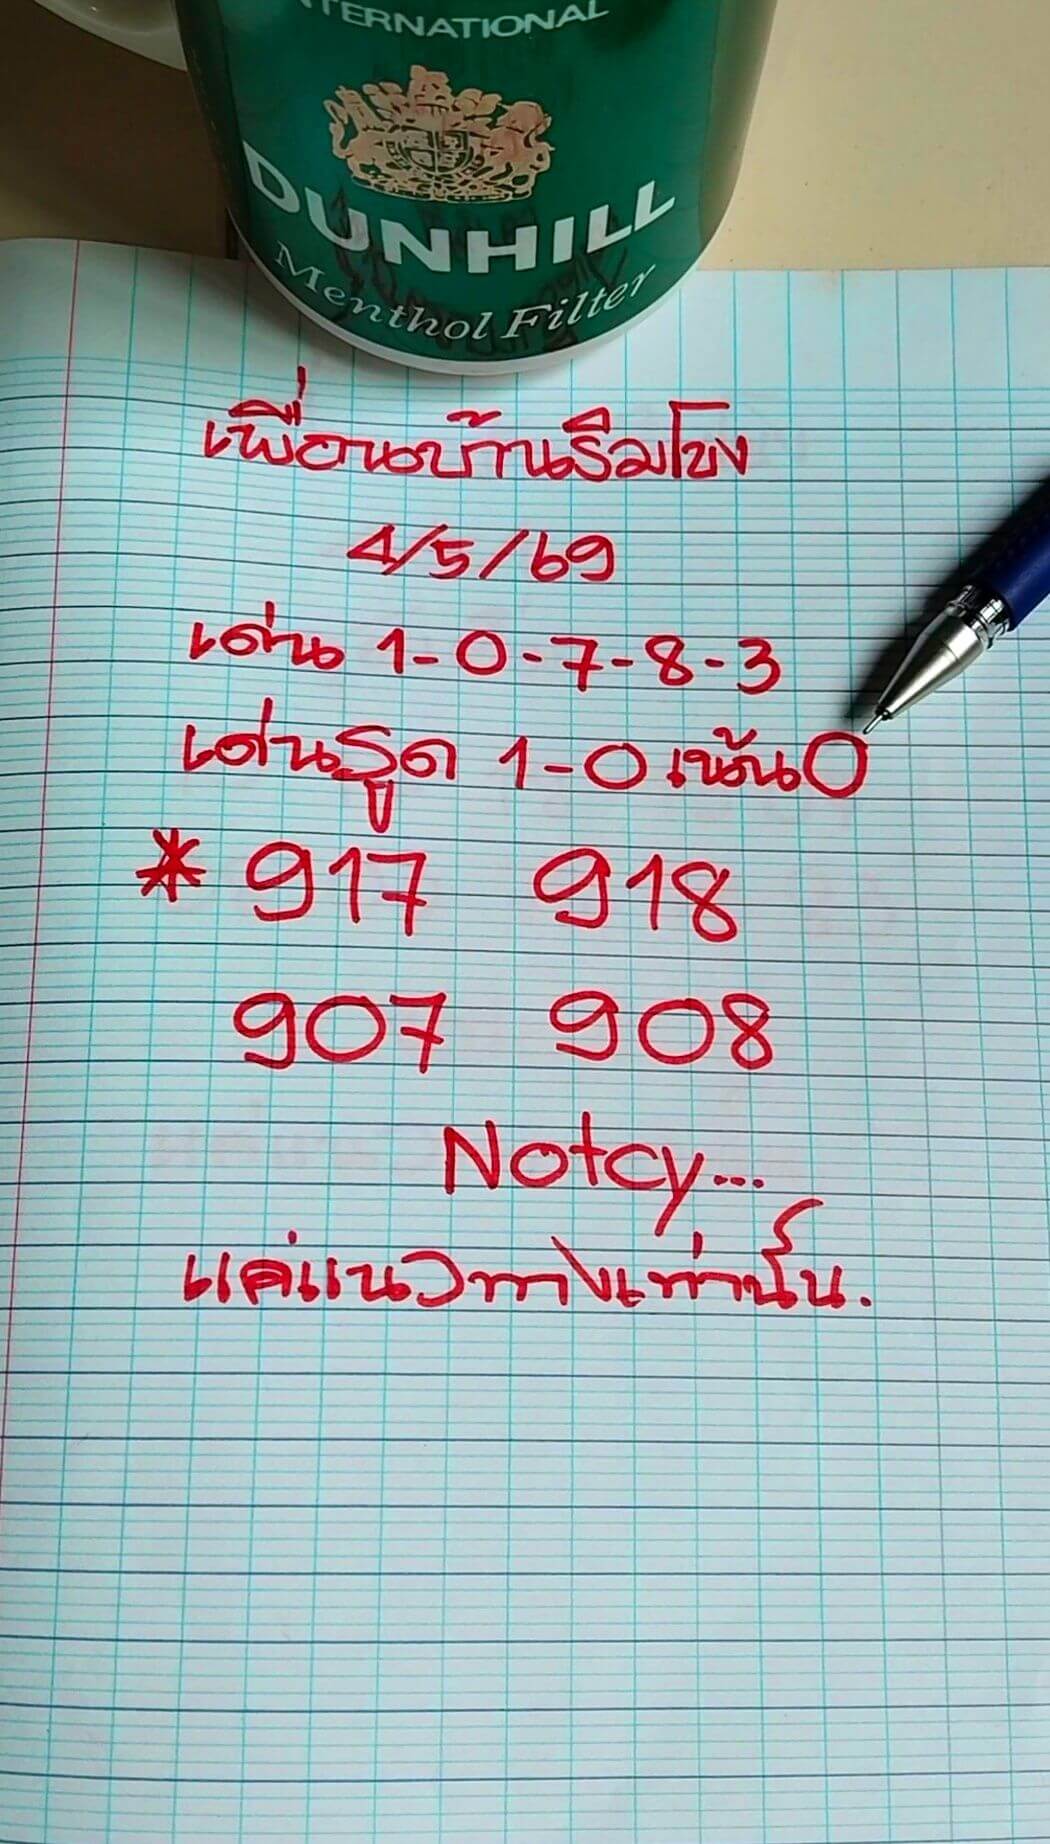 INTERNATIONAL
DUNHILL
Menthol Filter
เพื่อนบ้านริมโขง
4/5/69
เด่น 1-0-7-8-3
เด่นรูด 1-0 เน้น 0
* 917 918
907 908
Notcy...
แค่แนวทางเท่านั้น.